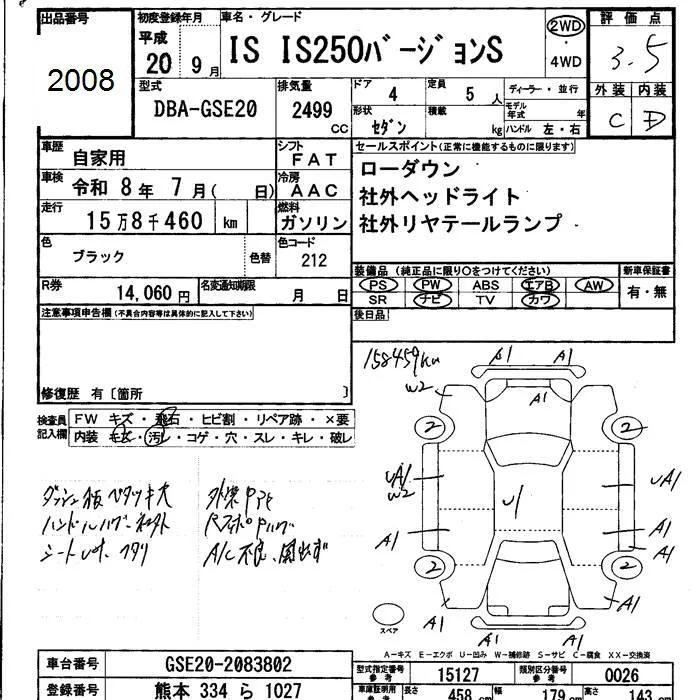 出品番号
初度登録年月
車名・グレード
評価点
2008
平成
20 9月
IS IS250バージョンS
2WD
4WD
3.5
型式
DBA-GSE20
排気量
2499 CC
ドア 4
定員 5人
ディーラー・並行
形状 セダン
積載 kg
モデル年式 年
ハンドル 左・右
外装 内装
C D
車歴 自家用
シフト FAT
セールスポイント(正常に機能するものに限ります)
車検 令和8年7月( 日)
冷房 AAC
ローダウン
社外ヘッドライト
走行 15万8千460 km
燃料 ガソリン
社外リヤテールランプ
色 ブラック
色替
色コード 212
R券 14,060円
名変通知期限 月 日
装備品(純正品に限り○をつけてください)
新車保証書
PS PW ABS エアB AW
有・無
SR ナビ TV カワ
注意事項申告欄(不具合内容等は具体的に記入して下さい)
後日品
158459km
修復歴 有〔箇所 〕
検査員記入欄
FW キズ・飛石・ヒビ割・リペア跡・×要
内装 キズ・汚レ・コゲ・穴・スレ・キレ・破レ
A1 A1
A1
W2
2 2
UA1
W2
U1
UA1
A1
A1
A1
2 2
A1
A1
ダッシュ板ベタツキ大
外装
ハンドル
シート
A/C不良
スペア
A-キズ E-エクボ U-凹み W-補修跡 S-サビ C-腐食 XX-交換済
車台番号 GSE20-2083802
型式指定番号 参考 15127
類別区分番号 参考 0026
登録番号 熊本 334 ら 1027
車庫証明用 参考
長さ 458 cm
幅 179 cm
高さ 143 cm